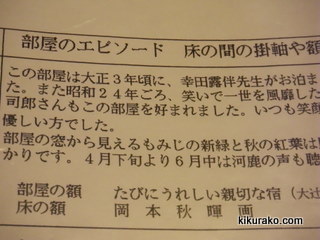 部屋のエピソード　床の間の掛軸や額
この部屋は大正３年頃に、幸田露伴先生がお泊ま
た。また昭和２４年ごろ、笑いで一世を風靡した
司郎さんもこの部屋を好まれました。いつも笑顔
優しい方でした。
部屋の窓から見えるもみじの新緑と秋の紅葉は
かりです。４月下旬より６月中は河鹿の声も聴
部屋の額　たびにうれしい親切な宿（大辻
床の額　岡本秋暉画
kikurako.com